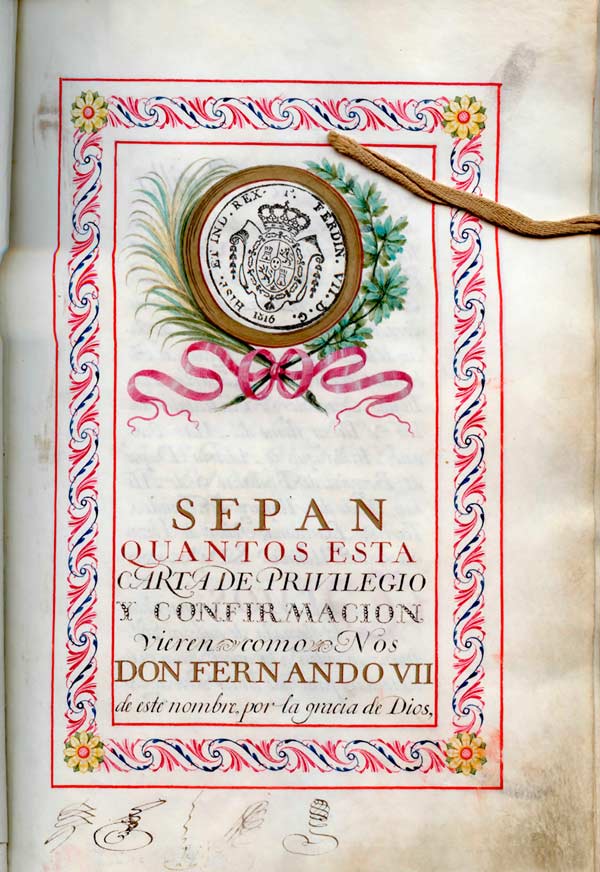 HISP. ET IND. REX. Iº. FERDIN. VII. D. G.
1816
SEPAN
QUANTOS ESTA
CARTA DE PRIVILEGIO
Y CONFIRMACION
vieren como Nos
DON FERNANDO VII
de este nombre, por la gracia de Dios,